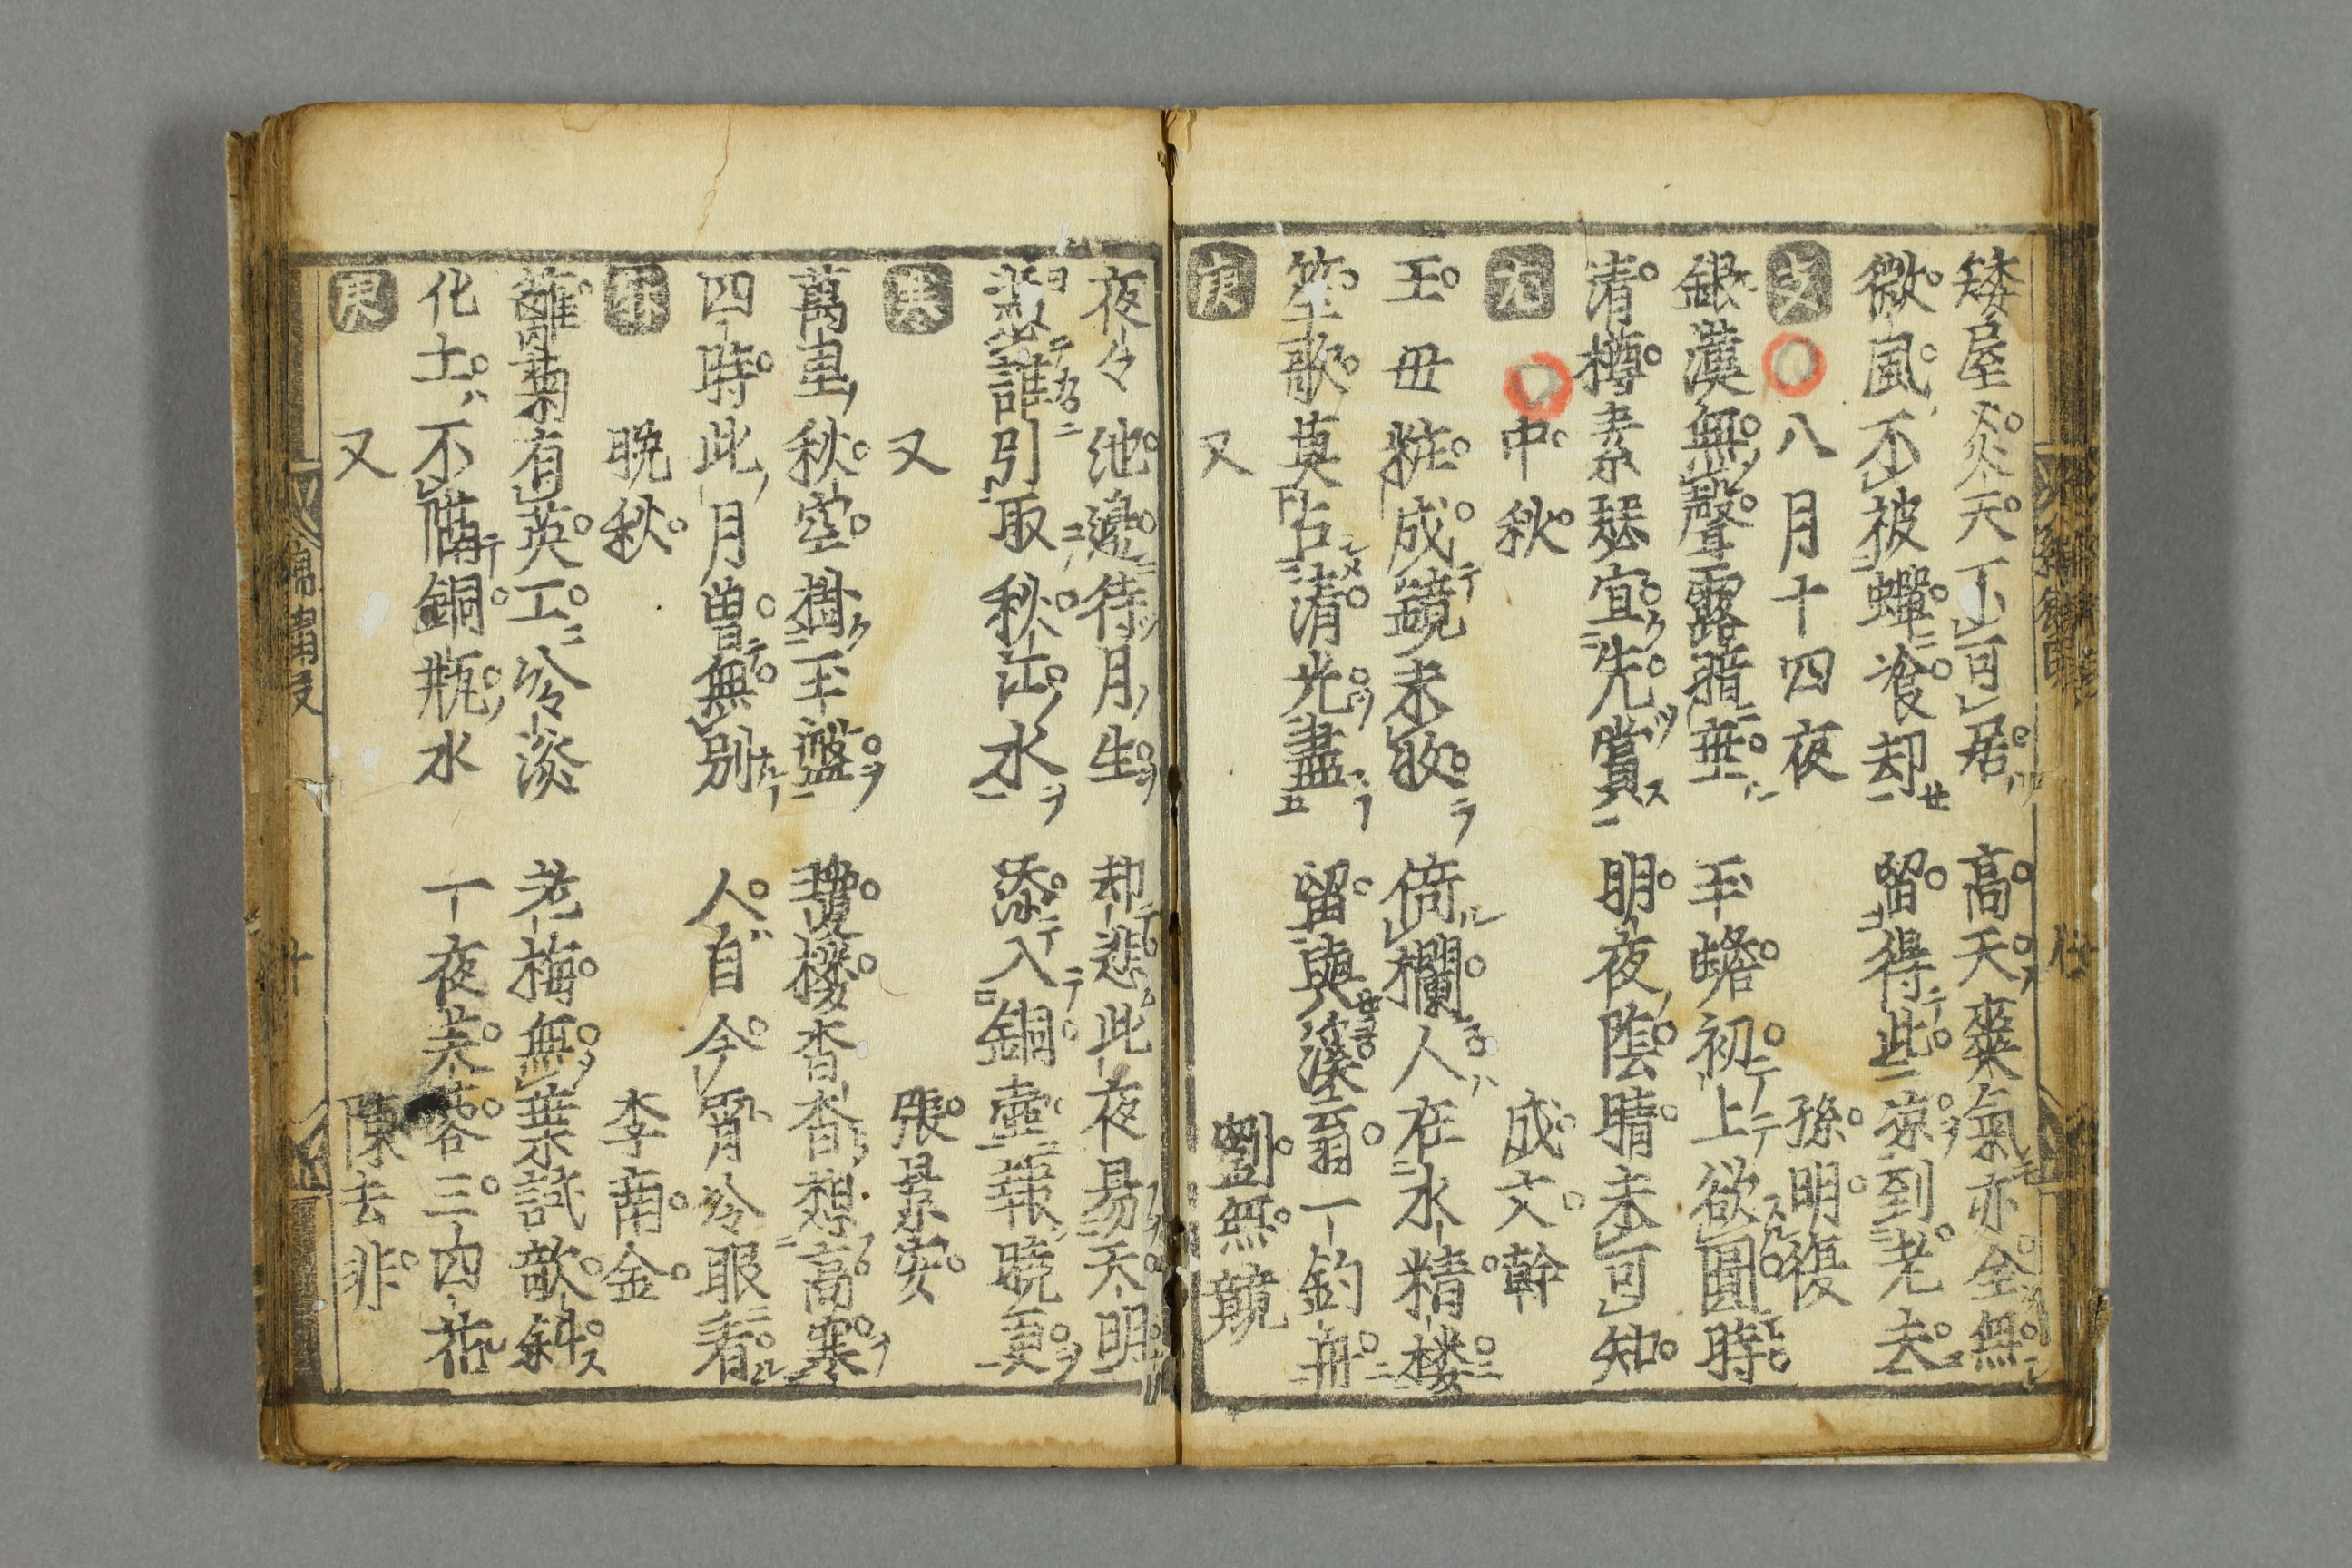 矮屋炎天不可居　高天爽氣亦全無
微風不被蟬飡却　留得此涼到老夫
支　八月十四夜　孫明復
銀漢無聲露暗垂　玉蟾初上欲圓時
清樽素瑟宜先賞　明夜陰晴未可知
尤　中秋　成文幹
王母粧成鏡未收　倚欄人在水精楼
笙歌莫占清光盡　留與溪翁一釣舟
庚　又　劉無競
夜々池邊待月生　却悲此夜易天明
誰引取秋江水　添入銅壺報曉更
寒　又　張景安
萬里秋空擁玉盤　瓊楼杳杳想高寒
四時此月曽無別　人自今宵冷眼看
麻　晩秋　李南金
籬菊有英工冷淡　老梅無葉試欹斜
化士不備銅瓶水　一夜芙蓉三四花
庚　又　陳去非